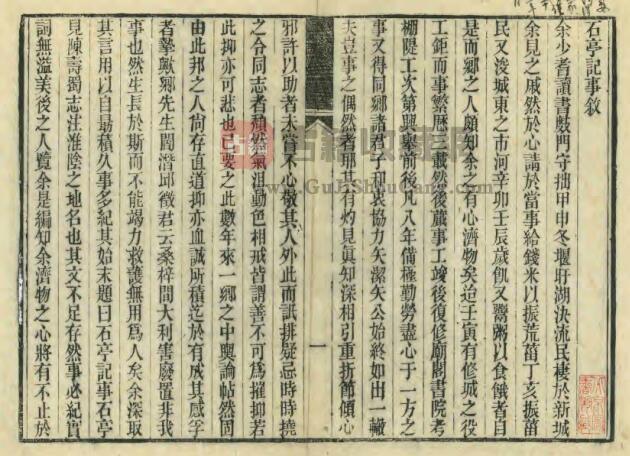 石亭記事敘
余少者讀書鼓門守拙甲申冬堰盱湖決流民棲於新城
余見之戚然於心請於當事給錢米以振荒菑丁亥振菑
民又浚城東之市河辛卯壬辰歲飢又鬻粥以食餓者自
是而鄉之人頗知余之有心濟物矣迨壬寅有修城之役
工鉅而事繁歷三載然後蕆事工竣後復修廟閣書院考
棚隄工次第興舉前後凡八年備極勤勞盡心于一方之
事又得同鄉諸君子和衷協力矢潔矢公始終如出一轍
夫豈事之偶然者耶其有灼見眞知深相引重折節傾心
邪許以助者未嘗不心敬其人外此而詆排疑忌時時撓
之合同志者頹然氣沮動色相戒皆謂善不可為摧抑若
此抑亦可悲也已要之此數年來一鄉之中輿論帖然固
由此邦之人尚存直道抑亦血誠所積迄於有成其感孚
者摯歟鄉先生閻潛邱徵君云桑梓間大利害廢置非我
事也然生長於斯而不能竭力救護無用爲人矣余深取
其言用以自勗積久事多紀其始末題曰石亭記事石亭
見陳壽蜀志注淮陰之地名也其文不足存然事必紀實
詞無溢美後之人覽余是編知余濟物之心將有不止於
一
www.GuJiShuCang.com